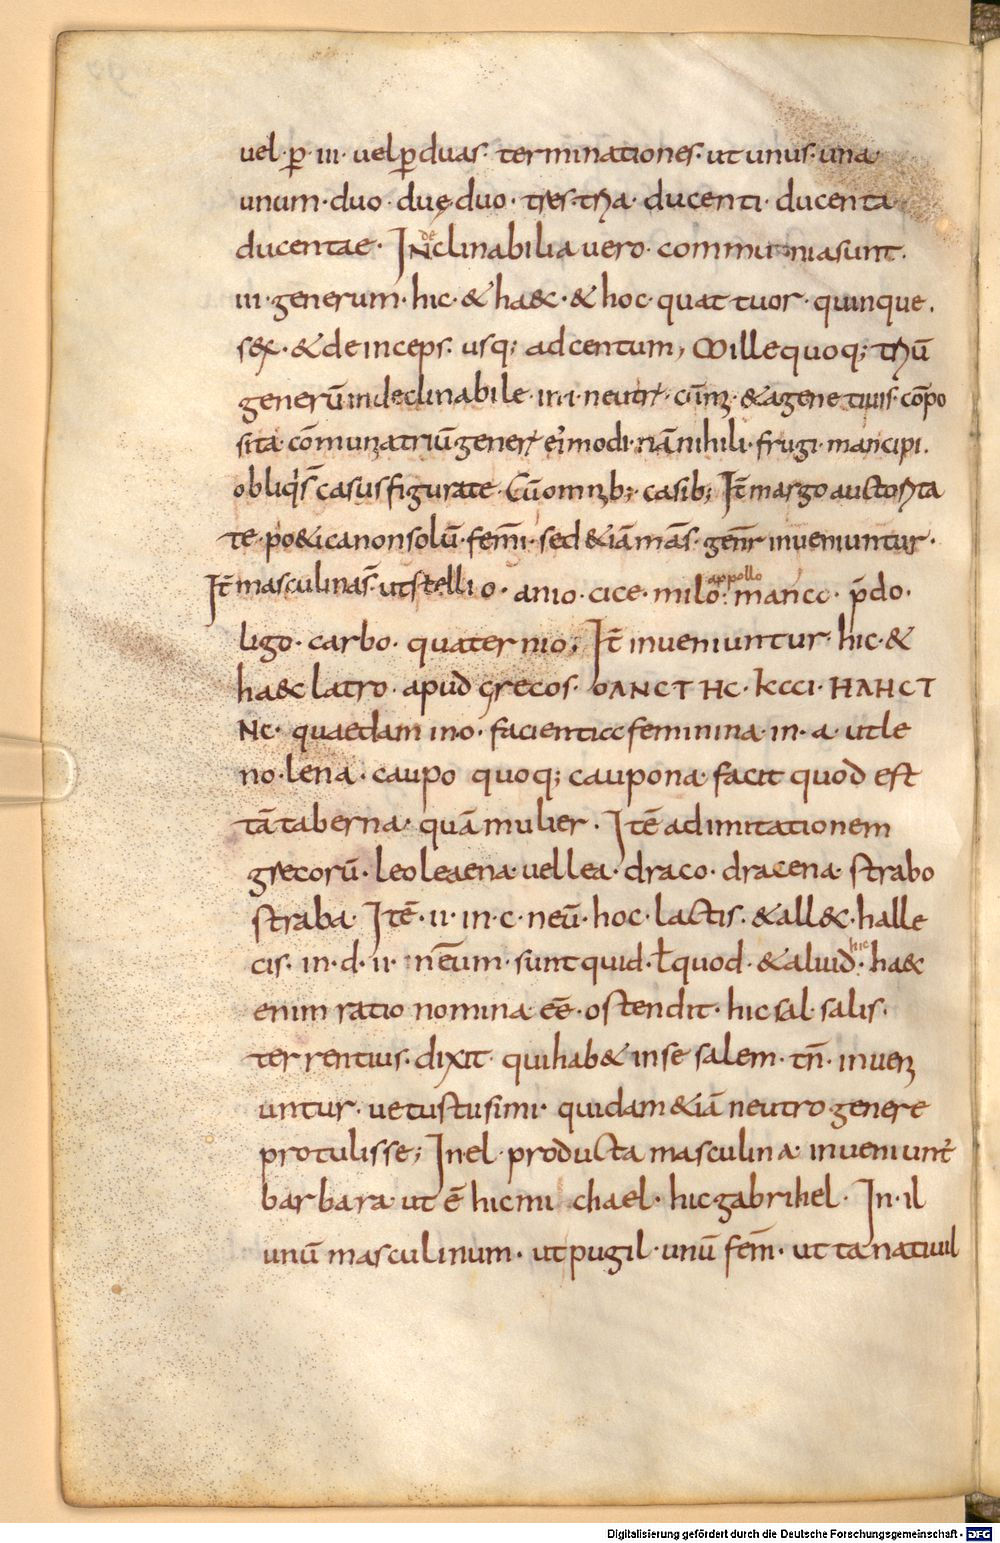 uel·ꝑ·iii·uelꝑduas·terminationes·utunus·una·
unum·duo·duęduo·tres·tria·ducenti·ducenta
ducentae·INclinabilia uero·communiasunt·
de
iii·generum·hic·&ha&c·&hoc·quattuor·quinque·
sex·&deinceps·usq; adcentum, Millequoq; triū
generū indeclinabile·in·i·neutr·cū &agenetiuis·cōpo
sita·cōmunia triū gener ei᾽modi·nā nihili·frugi·mancipi·
casusfigurate·Cū omnib; casib; It̄ margo auctorita
te·po&icanonsolū·fem̄i·sed &iā mās·gen̄r inueniuntur·
It̄ masculina s̄·utstellio·anio·cice·milo·mancc·p̄do·
appollo
ligo·carbo·quaternio; It̄ inueniuntur·hic·&
ha&clatro·apud grecos·OANCTHC·KCCI·HANCT
NC·quaedam in·o·facienticcfeminina·in·a·utle
no·lena·caupo quoq; caupona·facit quod est
tā taberna·quā mulier·Itē adimitationem
grecorū·leoleaena·uellea·draco·dracena·strabo
straba·Itē·ii·in·c·neū·hoc·lactis·&all&c·halle
cis·in·d·ii·nēum·suntquid·ł quod·&aluid·ha&c
hic
enim ratio nomina eē·ostendit·hicsal·salis·
terrentius·dixit·quihab& inse salem·tn̄·inueni
untur·uetustusimi·quidam &iā neutro·genere
protulisse; Inel·producta masculina·inueniunt᾽
barbara ut ē hicmichael·hicgabrihel·In·il
unū masculinum·utpugil·unū fem̄·ut tanatiuil
Digitalisierung gefördert durch die Deutsche Forschungsgemeinschaft - DFG